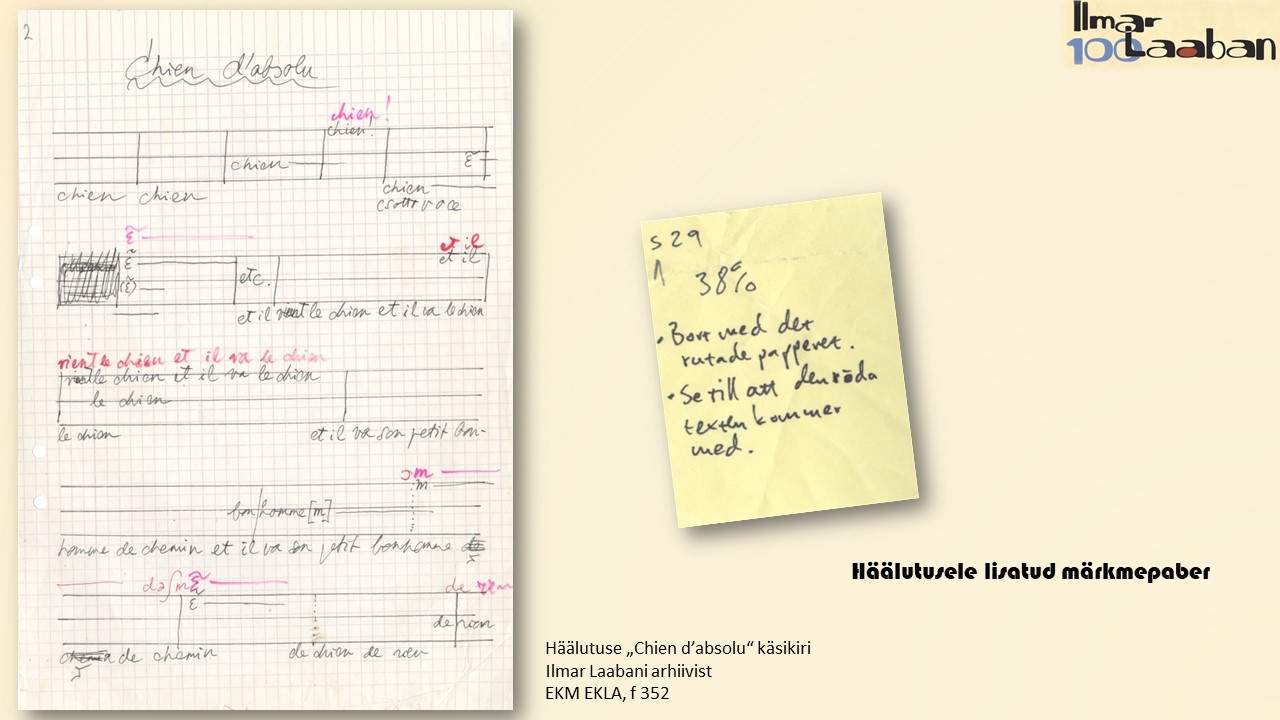 2
Chien d'absolu
chien!
chien!
chien
ɛ̃
chien chien
chien
(sotto voce
ɛ̃
et il
ɛ̃
et il
(ɛ̃)
etc.
et il vient le chien et il va le chien
vient le chien et il va le chien
vient le chien et il va le chien
le chien
le chien
et il va son petit bon-
ɔm
m
bon homme [m]
homme de chemin et il va son petit bonhomme
dəʃmɛ̃
de rien
ɛ̃
de rien
de chemin
de chien de rien
Ilmar
100 Laaban
s 29
38%
• Bort med det
rutade papperet.
• Se till att den röda
texten kommer
med.
Häälutusele lisatud märkmepaber
Häälutuse „Chien d’absolu“ käsikiri
Ilmar Laabani arhiivist
EKM EKLA, f 352